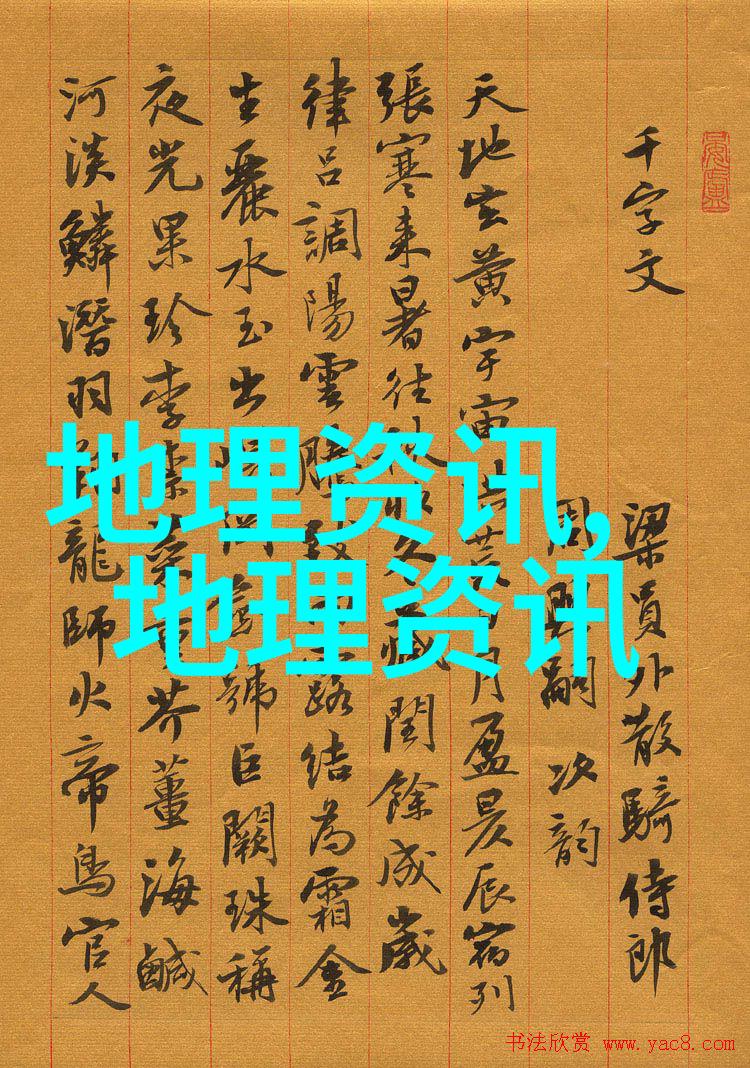 千字文
梁員外散騎侍郎
周興嗣次韵
天地玄黄宇宙洪荒月盈昃辰宿列
張寒来暑往收藏閏餘成歲
律吕調陽雲騰致露結為霜金
生麗水玉出岡號巨闕珠稱
夜光果珍李柰菜重芥薑海鹹
河淡鱗潛羽翔龍師火帝鳥官人
地理资讯,
地理资讯
书法欣赏 www.yac8.com